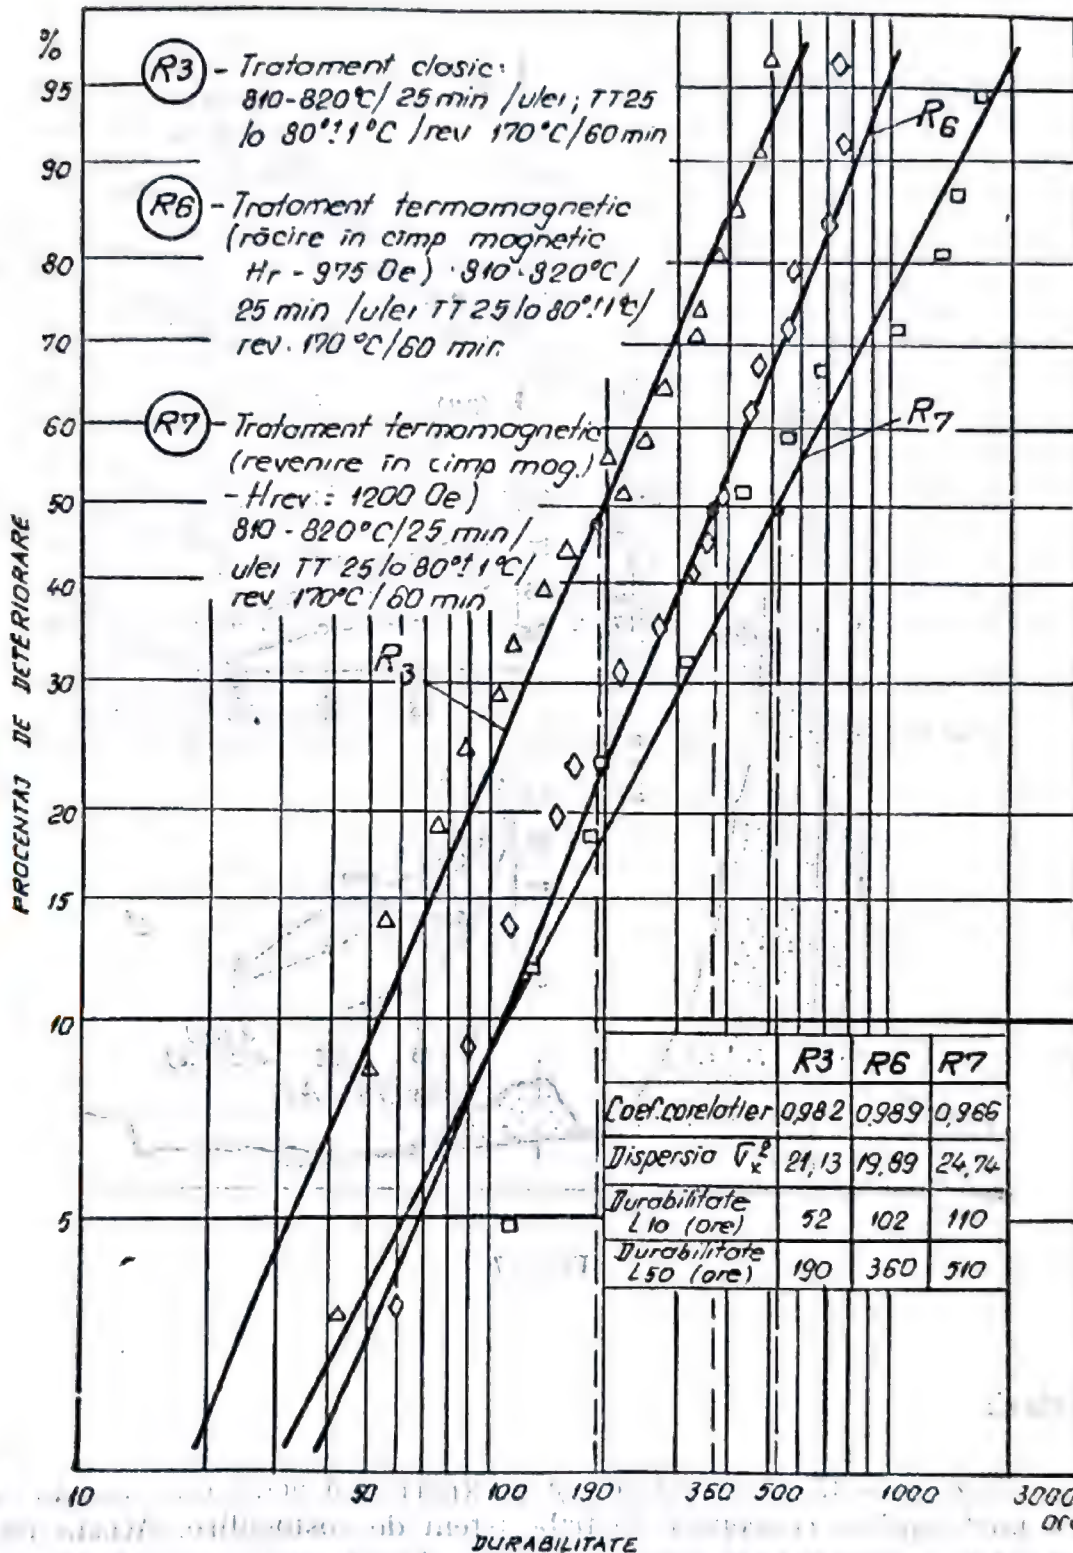 %
95
90
80
70
60
50
40
30
20
15
10
5
PROCENTAJ DE DETERIORARE
R3 - Tratament clasic:
810-820°C/ 25 min /ulei; TT25
la 80°±1°C /rev 170°C/60 min
R6 - Tratament termomagnetic
(răcire în cîmp magnetic
Hr - 975 Oe) 810-820°C/
25 min /ulei TT 25 la 80°±1°C/
rev. 170°C/60 min
R7 - Tratament termomagnetic
(revenire în cîmp mag.)
- Hrev = 1200 Oe)
810 - 820°C/25 min/
ulei TT 25 la 80°±1°C/
rev 170°C/60 min
R6
R7
R3
R3 R6 R7
Coef.corelatier 0,982 0,989 0,966
Dispersia 21,13 19,89 24,74
Durabilitate
L10 (ore) 52 102 110
Durabilitate
L50 (ore) 190 360 510
10 50 100 190 360 500 1000 3000
ore
DURABILITATE